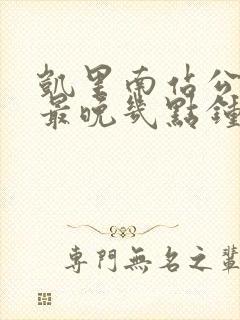 凱里南佔公
最晚幾點鐘
專門無名之輩